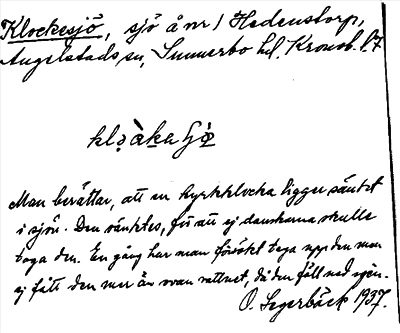 Klockesjö, sjö å nr 1 Hedenstorp,
Angelstads sn, Sunnerbo hd, Kronob. l.
klọ̀akaʃjọ
Man berättar, att en kyrkklocka ligger sänkt
i sjön. Den sänktes, för att ej danskarna skulle
taga den. En gång har man försökt taga upp den men
ej fått den mer än ovan vattnet, då den föll ned igen.
O. Segerbäck 1937.